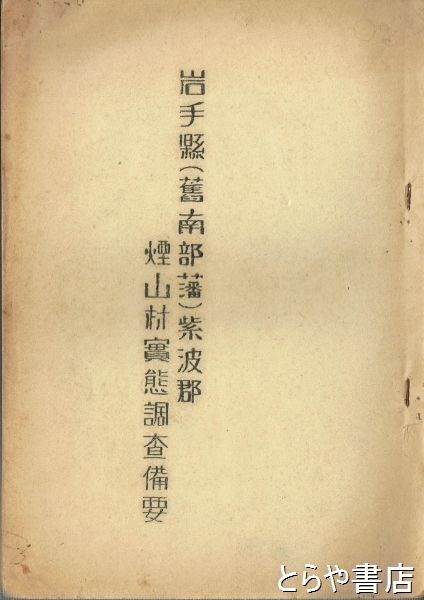 岩手縣（舊南部藩）紫波郡
煙山村實態調査備要
とらや書店